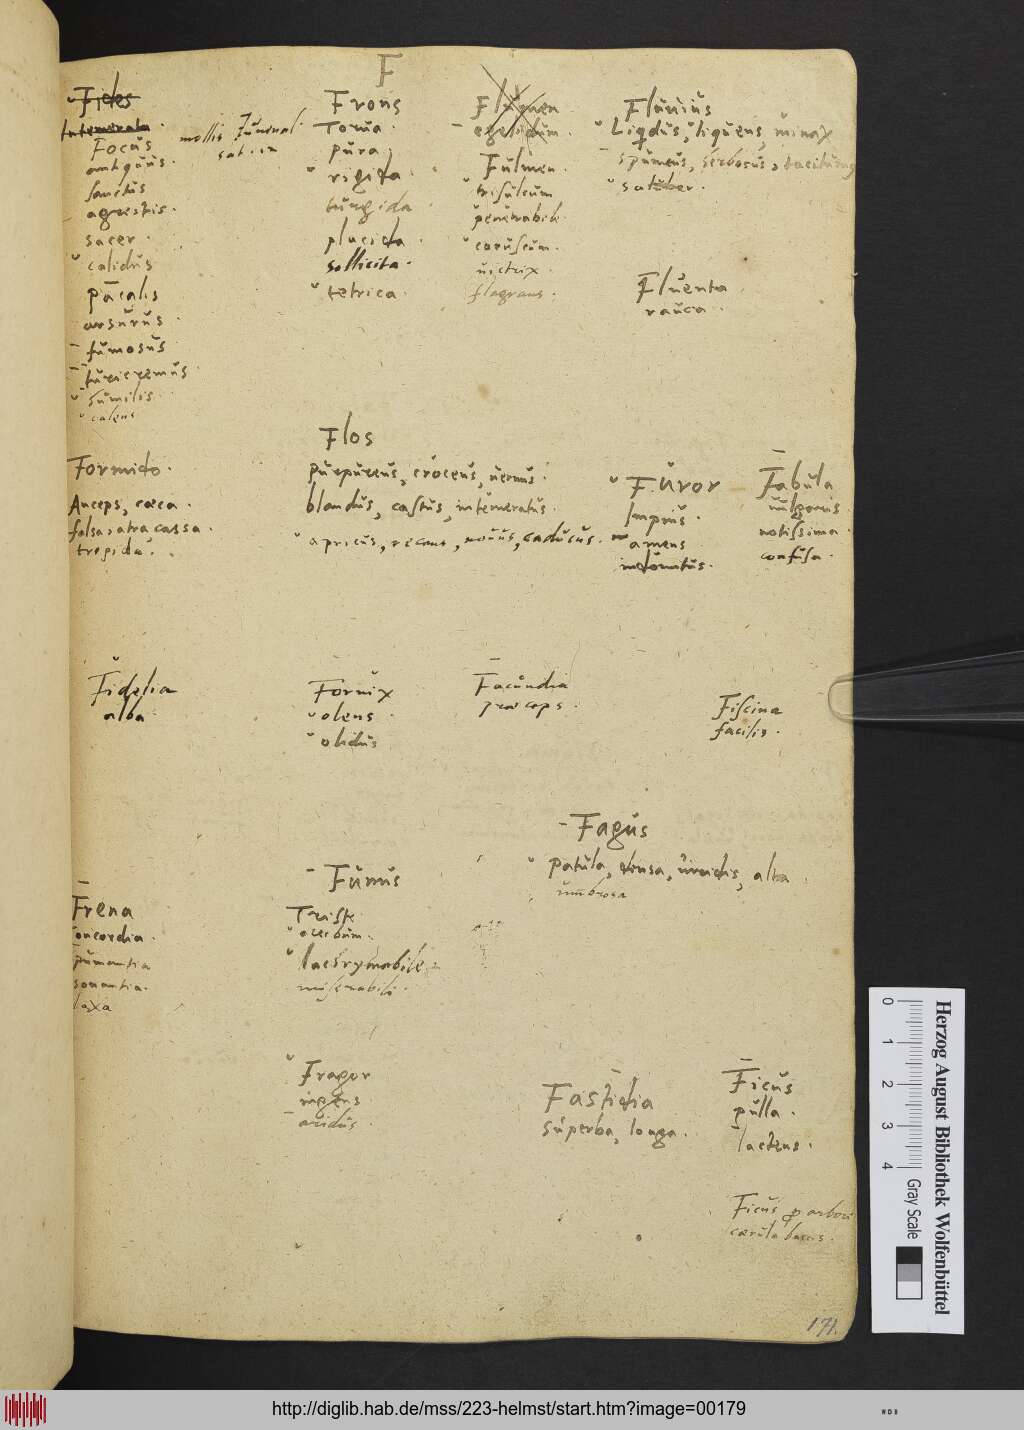 F
Fides
Intemerata.
Focus
antiquus.
sanctus
agrestis.
sacer.
calidus
arsurus
fumosus
turicremus
calens
mollis Juvenal.
Frons
Torua.
pura.
rigida.
turgida
placida.
sollicita.
tetrica.
Flumen
egelidum.
Fulmen.
trisulcum
penetrabile.
coruscum.
uictrix.
flagrans.
Fluuius
Liqdus, liquens, minax
spumeus, herbosus, taciturnus
Fluenta
rauca.
Formido.
Anceps, cæca.
falsa, atra, cassa.
trepida.
Flos
purpureus, croceus, uernus.
blandus, castus, intemeratus.
apricus, recens, nouus, caducus.
Furor
Impius.
amens
indomitus.
Fabula
uulgaris
notissima
confusa.
Fidelia
alba
Fornix
olens.
olidus
Facundia
præceps.
Fiscina
facilis.
Fagus
patula, densa, uiridis, alta
umbrosa
Frena
concordia.
spumantia
sonantia.
laxa
Funus
Triste
acerbum.
lachrymabile
miserabile.
Fragor
ingens
aridus.
Fastidia
superba, longa.
Ficus
pulla.
lactens.
Ficus p arbore
cærula baccis.
171.
Herzog August Bibliothek Wolfenbüttel
0 1 2 3 4
Gray Scale
http://diglib.hab.de/mss/223-helmst/start.htm?image=00179